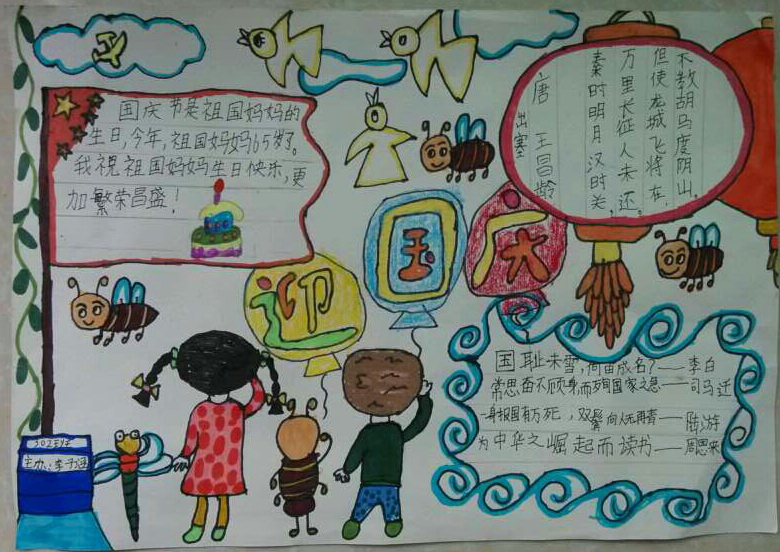 国庆节是祖国妈妈的
生日,今年,祖国妈妈65岁了。
我祝祖国妈妈生日快乐,更
加繁荣昌盛!
出塞
唐 王昌龄
秦时明月汉时关,
万里长征人未还。
但使龙城飞将在,
不教胡马度阴山。
迎国庆
国耻未雪,何由成名?——李白
常思奋不顾身而殉国家之急——司马迁
一身报国有万死,双鬓向人无再青——陆游
为中华之崛起而读书——周恩来
主办:李子涵